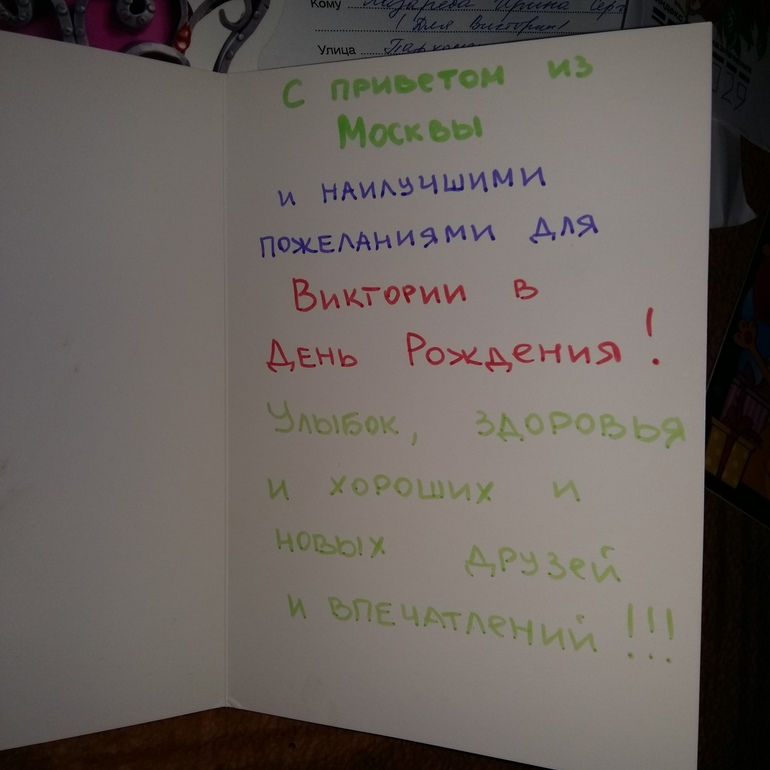 Кому Лазарева Ирина Серг
(Для Виктории)
Улица
С приветом из
Москвы
и наилучшими
пожеланиями для
Виктории в
День Рождения!
Улыбок, здоровья
и хороших и
новых друзей
и впечатлений!!!